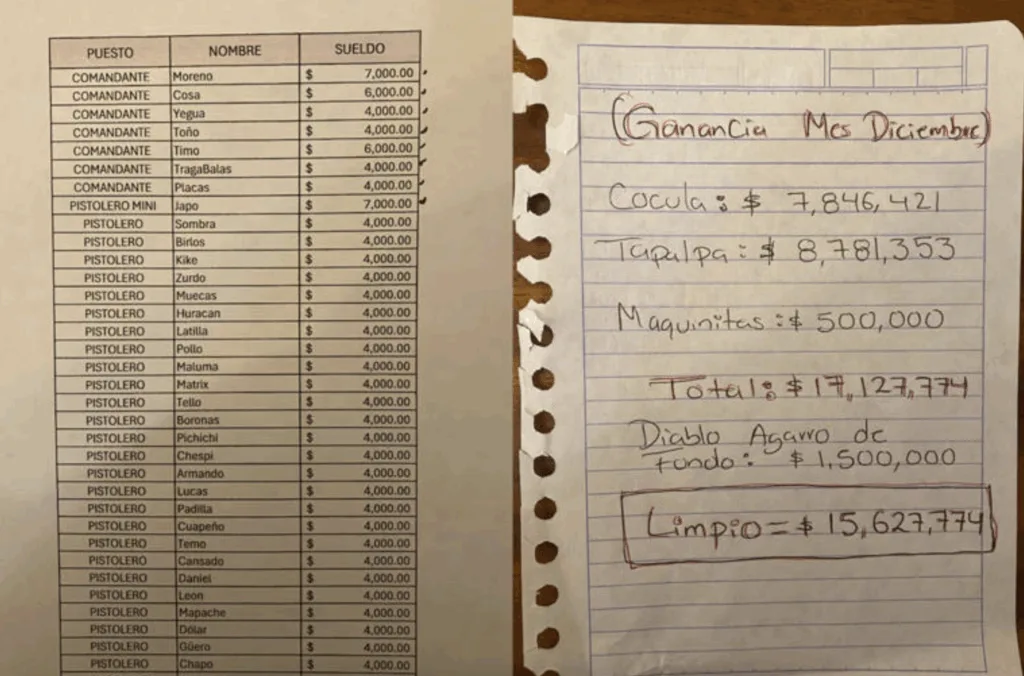 PUESTO NOMBRE SUELDO
COMANDANTE Moreno $ 7,000.00
COMANDANTE Cosa $ 6,000.00
COMANDANTE Yegua $ 4,000.00
COMANDANTE Toño $ 4,000.00
COMANDANTE Timo $ 6,000.00
COMANDANTE TragaBalas $ 4,000.00
COMANDANTE Placas $ 4,000.00
PISTOLERO MINI Japo $ 7,000.00
PISTOLERO Sombra $ 4,000.00
PISTOLERO Birlos $ 4,000.00
PISTOLERO Kike $ 4,000.00
PISTOLERO Zurdo $ 4,000.00
PISTOLERO Muecas $ 4,000.00
PISTOLERO Huracan $ 4,000.00
PISTOLERO Latilla $ 4,000.00
PISTOLERO Pollo $ 4,000.00
PISTOLERO Maluma $ 4,000.00
PISTOLERO Matrix $ 4,000.00
PISTOLERO Tello $ 4,000.00
PISTOLERO Boronas $ 4,000.00
PISTOLERO Pichichi $ 4,000.00
PISTOLERO Chespi $ 4,000.00
PISTOLERO Armando $ 4,000.00
PISTOLERO Lucas $ 4,000.00
PISTOLERO Padilla $ 4,000.00
PISTOLERO Cuapeño $ 4,000.00
PISTOLERO Temo $ 4,000.00
PISTOLERO Cansado $ 4,000.00
PISTOLERO Daniel $ 4,000.00
PISTOLERO Leon $ 4,000.00
PISTOLERO Mapache $ 4,000.00
PISTOLERO Dolar $ 4,000.00
PISTOLERO Güero $ 4,000.00
PISTOLERO Chapo $ 4,000.00
(Ganancia Mes Diciembre)
Cocula: $ 7,846,421
Tapalpa: $ 8,781,353
Maquinitas: $ 500,000
Total: $ 17,127,774
Diablo Agarro de
fondo: $ 1,500,000
Limpio = $ 15,627,774